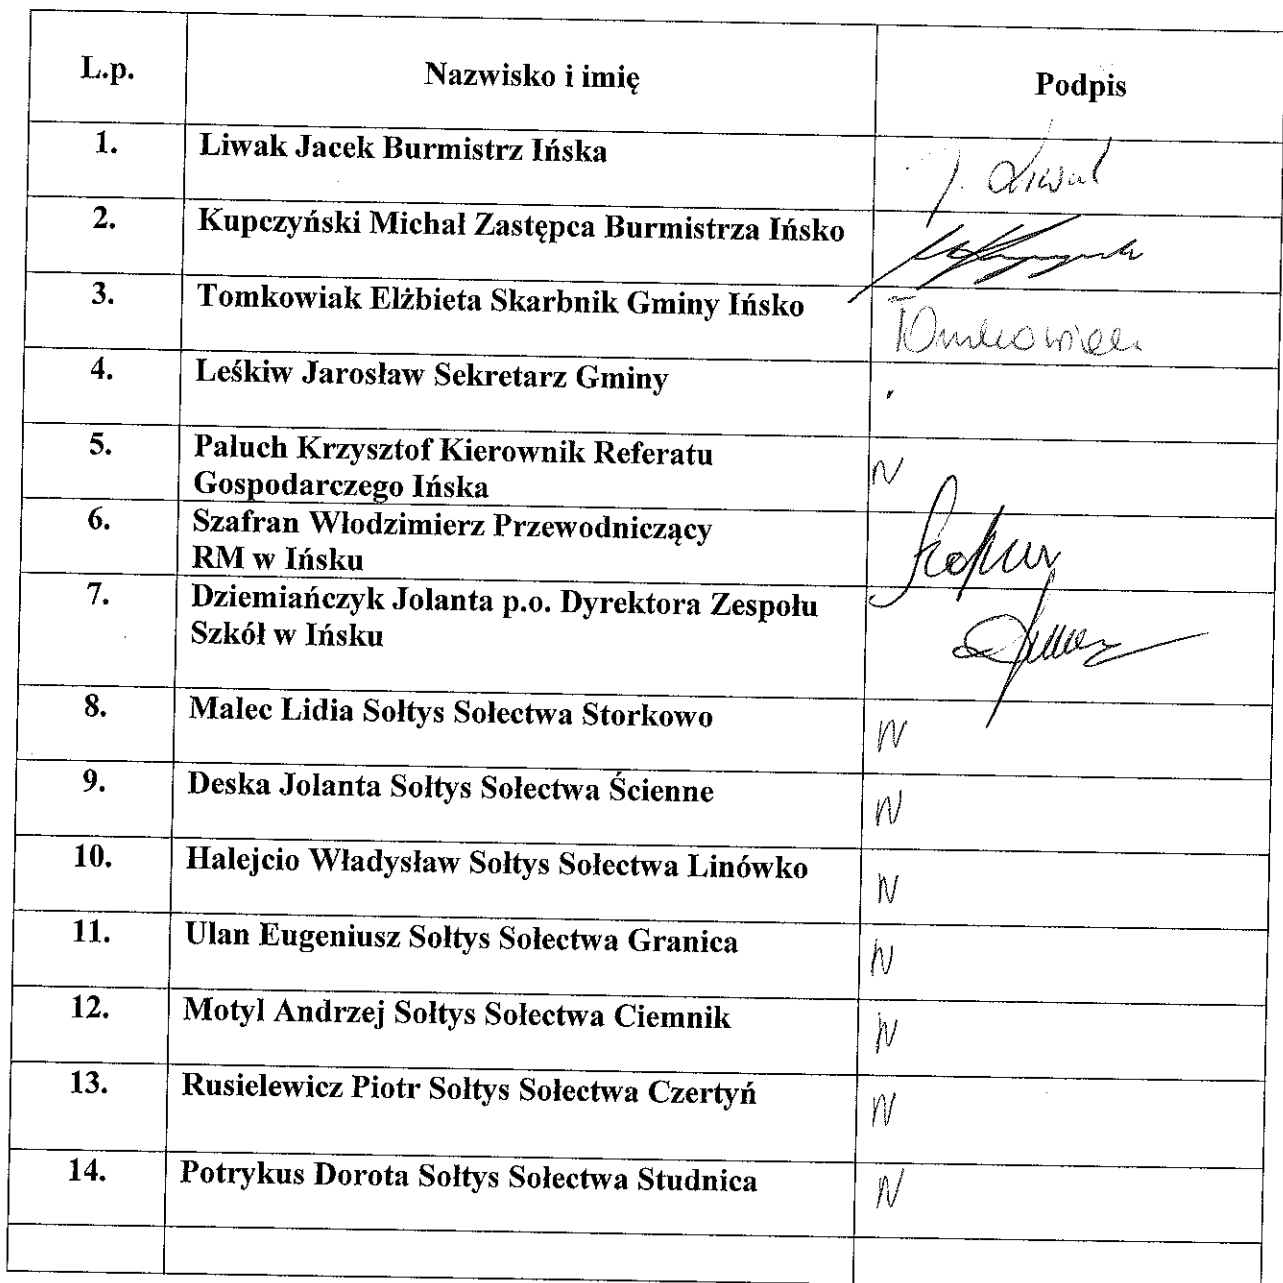 L.p. Nazwisko i imię Podpis
1. Liwak Jacek Burmistrz Ińska J. Liwak
2. Kupczyński Michał Zastępca Burmistrza Ińsko
3. Tomkowiak Elżbieta Skarbnik Gminy Ińsko Tomkowiak
4. Leśkiw Jarosław Sekretarz Gminy
5. Paluch Krzysztof Kierownik Referatu N
Gospodarczego Ińska
6. Szafran Włodzimierz Przewodniczący
RM w Ińsku
7. Dziemiańczyk Jolanta p.o. Dyrektora Zespołu
Szkół w Ińsku
8. Malec Lidia Sołtys Sołectwa Storkowo N
9. Deska Jolanta Sołtys Sołectwa Ścienne N
10. Halejcio Władysław Sołtys Sołectwa Linówko N
11. Ulan Eugeniusz Sołtys Sołectwa Granica N
12. Motyl Andrzej Sołtys Sołectwa Ciemnik N
13. Rusielewicz Piotr Sołtys Sołectwa Czertyń N
14. Potrykus Dorota Sołtys Sołectwa Studnica N